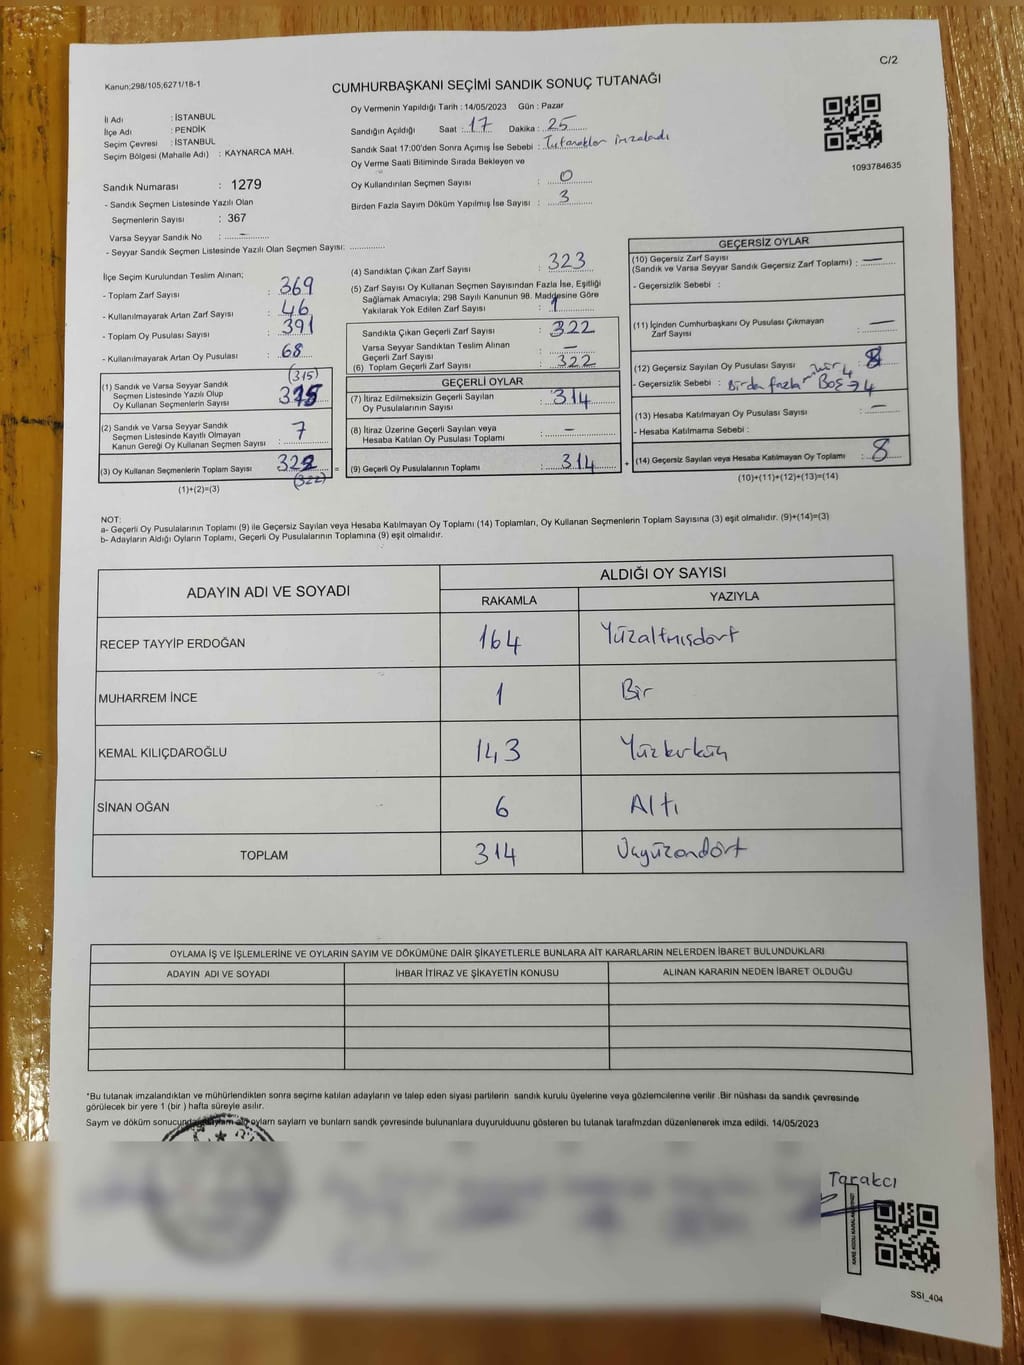 C/2
Kanun;298/105,6271/18-1
CUMHURBAŞKANI SEÇİMİ SANDIK SONUÇ TUTANAĞI
1093784635
İl Adı : İSTANBUL
İlçe Adı : PENDİK
Seçim Çevresi : İSTANBUL
Seçim Bölgesi (Mahalle Adı) : KAYNARCA MAH.
Sandık Numarası : 1279
- Sandık Seçmen Listesinde Yazılı Olan
Seçmenlerin Sayısı : 367
Varsa Seyyar Sandık No : –
- Seyyar Sandık Seçmen Listesinde Yazılı Olan Seçmen Sayısı: ............
Oy Vermenin Yapıldığı Tarih : 14/05/2023 Gün : Pazar
Sandığın Açıldığı Saat : 17 Dakika : 25
Sandık Saat 17:00'den Sonra Açımış İse Sebebi : Tutanaklar imzaladı
Oy Verme Saati Bitiminde Sırada Bekleyen ve
Oy Kullandırılan Seçmen Sayısı : 0
Birden Fazla Sayım Döküm Yapılmış İse Sayısı : 3
İlçe Seçim Kurulundan Teslim Alınan;
- Toplam Zarf Sayısı : 369
- Kullanılmayarak Artan Zarf Sayısı : 46
- Toplam Oy Pusulası Sayısı : 391
- Kullanılmayarak Artan Oy Pusulası : 68
(315)
(1) Sandık ve Varsa Seyyar Sandık
Seçmen Listesinde Yazılı Olup
Oy Kullanan Seçmenlerin Sayısı : 315
(2) Sandık ve Varsa Seyyar Sandık
Seçmen Listesinde Kayıtlı Olmayan
Kanun Gereği Oy Kullanan Seçmen Sayısı : 7
(3) Oy Kullanan Seçmenlerin Toplam Sayısı : 322 =
(322)
(1)+(2)=(3)
(4) Sandıktan Çıkan Zarf Sayısı : 323
(5) Zarf Sayısı Oy Kullanan Seçmen Sayısından Fazla İse, Eşitliği
Sağlamak Amacıyla; 298 Sayılı Kanunun 98. Maddesine Göre
Yakılarak Yok Edilen Zarf Sayısı : 1
Sandıkta Çıkan Geçerli Zarf Sayısı : 322
Varsa Seyyar Sandıktan Teslim Alınan
Geçerli Zarf Sayısı : –
(6) Toplam Geçerli Zarf Sayısı : 322
GEÇERLİ OYLAR
(7) İtiraz Edilmeksizin Geçerli Sayılan
Oy Pusulalarının Sayısı : 314
(8) İtiraz Üzerine Geçerli Sayılan veya
Hesaba Katılan Oy Pusulası Toplamı : –
(9) Geçerli Oy Pusulalarının Toplamı : 314 +
GEÇERSİZ OYLAR
(10) Geçersiz Zarf Sayısı
(Sandık ve Varsa Seyyar Sandık Geçersiz Zarf Toplamı) : –
- Geçersizlik Sebebi :
(11) İçinden Cumhurbaşkanı Oy Pusulası Çıkmayan
Zarf Sayısı : –
(12) Geçersiz Sayılan Oy Pusulası Sayısı : 8
- Geçersizlik Sebebi : Birden fazla mühür 4 Boş → 4
(13) Hesaba Katılmayan Oy Pusulası Sayısı : –
- Hesaba Katılmama Sebebi :
(14) Geçersiz Sayılan veya Hesaba Katılmayan Oy Toplamı : 8
(10)+(11)+(12)+(13)=(14)
NOT:
a- Geçerli Oy Pusulalarının Toplamı (9) ile Geçersiz Sayılan veya Hesaba Katılmayan Oy Toplamı (14) Toplamları, Oy Kullanan Seçmenlerin Toplam Sayısına (3) eşit olmalıdır. (9)+(14)=(3)
b- Adayların Aldığı Oyların Toplamı, Geçerli Oy Pusulalarının Toplamına (9) eşit olmalıdır.
ADAYIN ADI VE SOYADI
ALDIĞI OY SAYISI
RAKAMLA YAZIYLA
RECEP TAYYİP ERDOĞAN 164 Yüzaltmışdört
MUHARREM İNCE 1 Bir
KEMAL KILIÇDAROĞLU 143 Yüzkırküç
SİNAN OĞAN 6 Altı
TOPLAM 314 Üçyüzondört
OYLAMA İŞ VE İŞLEMLERİNE VE OYLARIN SAYIM VE DÖKÜMÜNE DAİR ŞİKAYETLERLE BUNLARA AİT KARARLARIN NELERDEN İBARET BULUNDUKLARI
ADAYIN ADI VE SOYADI İHBAR İTİRAZ VE ŞİKAYETİN KONUSU ALINAN KARARIN NEDEN İBARET OLDUĞU
*Bu tutanak imzalandıktan ve mühürlendikten sonra seçime katılan adayların ve talep eden siyasi partilerin sandık kurulu üyelerine veya gözlemcilerine verilir .Bir nüshası da sandık çevresinde
görülecek bir yere 1 (bir ) hafta süreyle asılır.
Saym ve döküm sonucunda oylarn saylarn ve bunlarn sandk çevresinde bulunanlara duyurulduunu gösteren bu tutanak tarafmzdan düzenlenerek imza edildi. 14/05/2023
Tarakcı
SSI_404